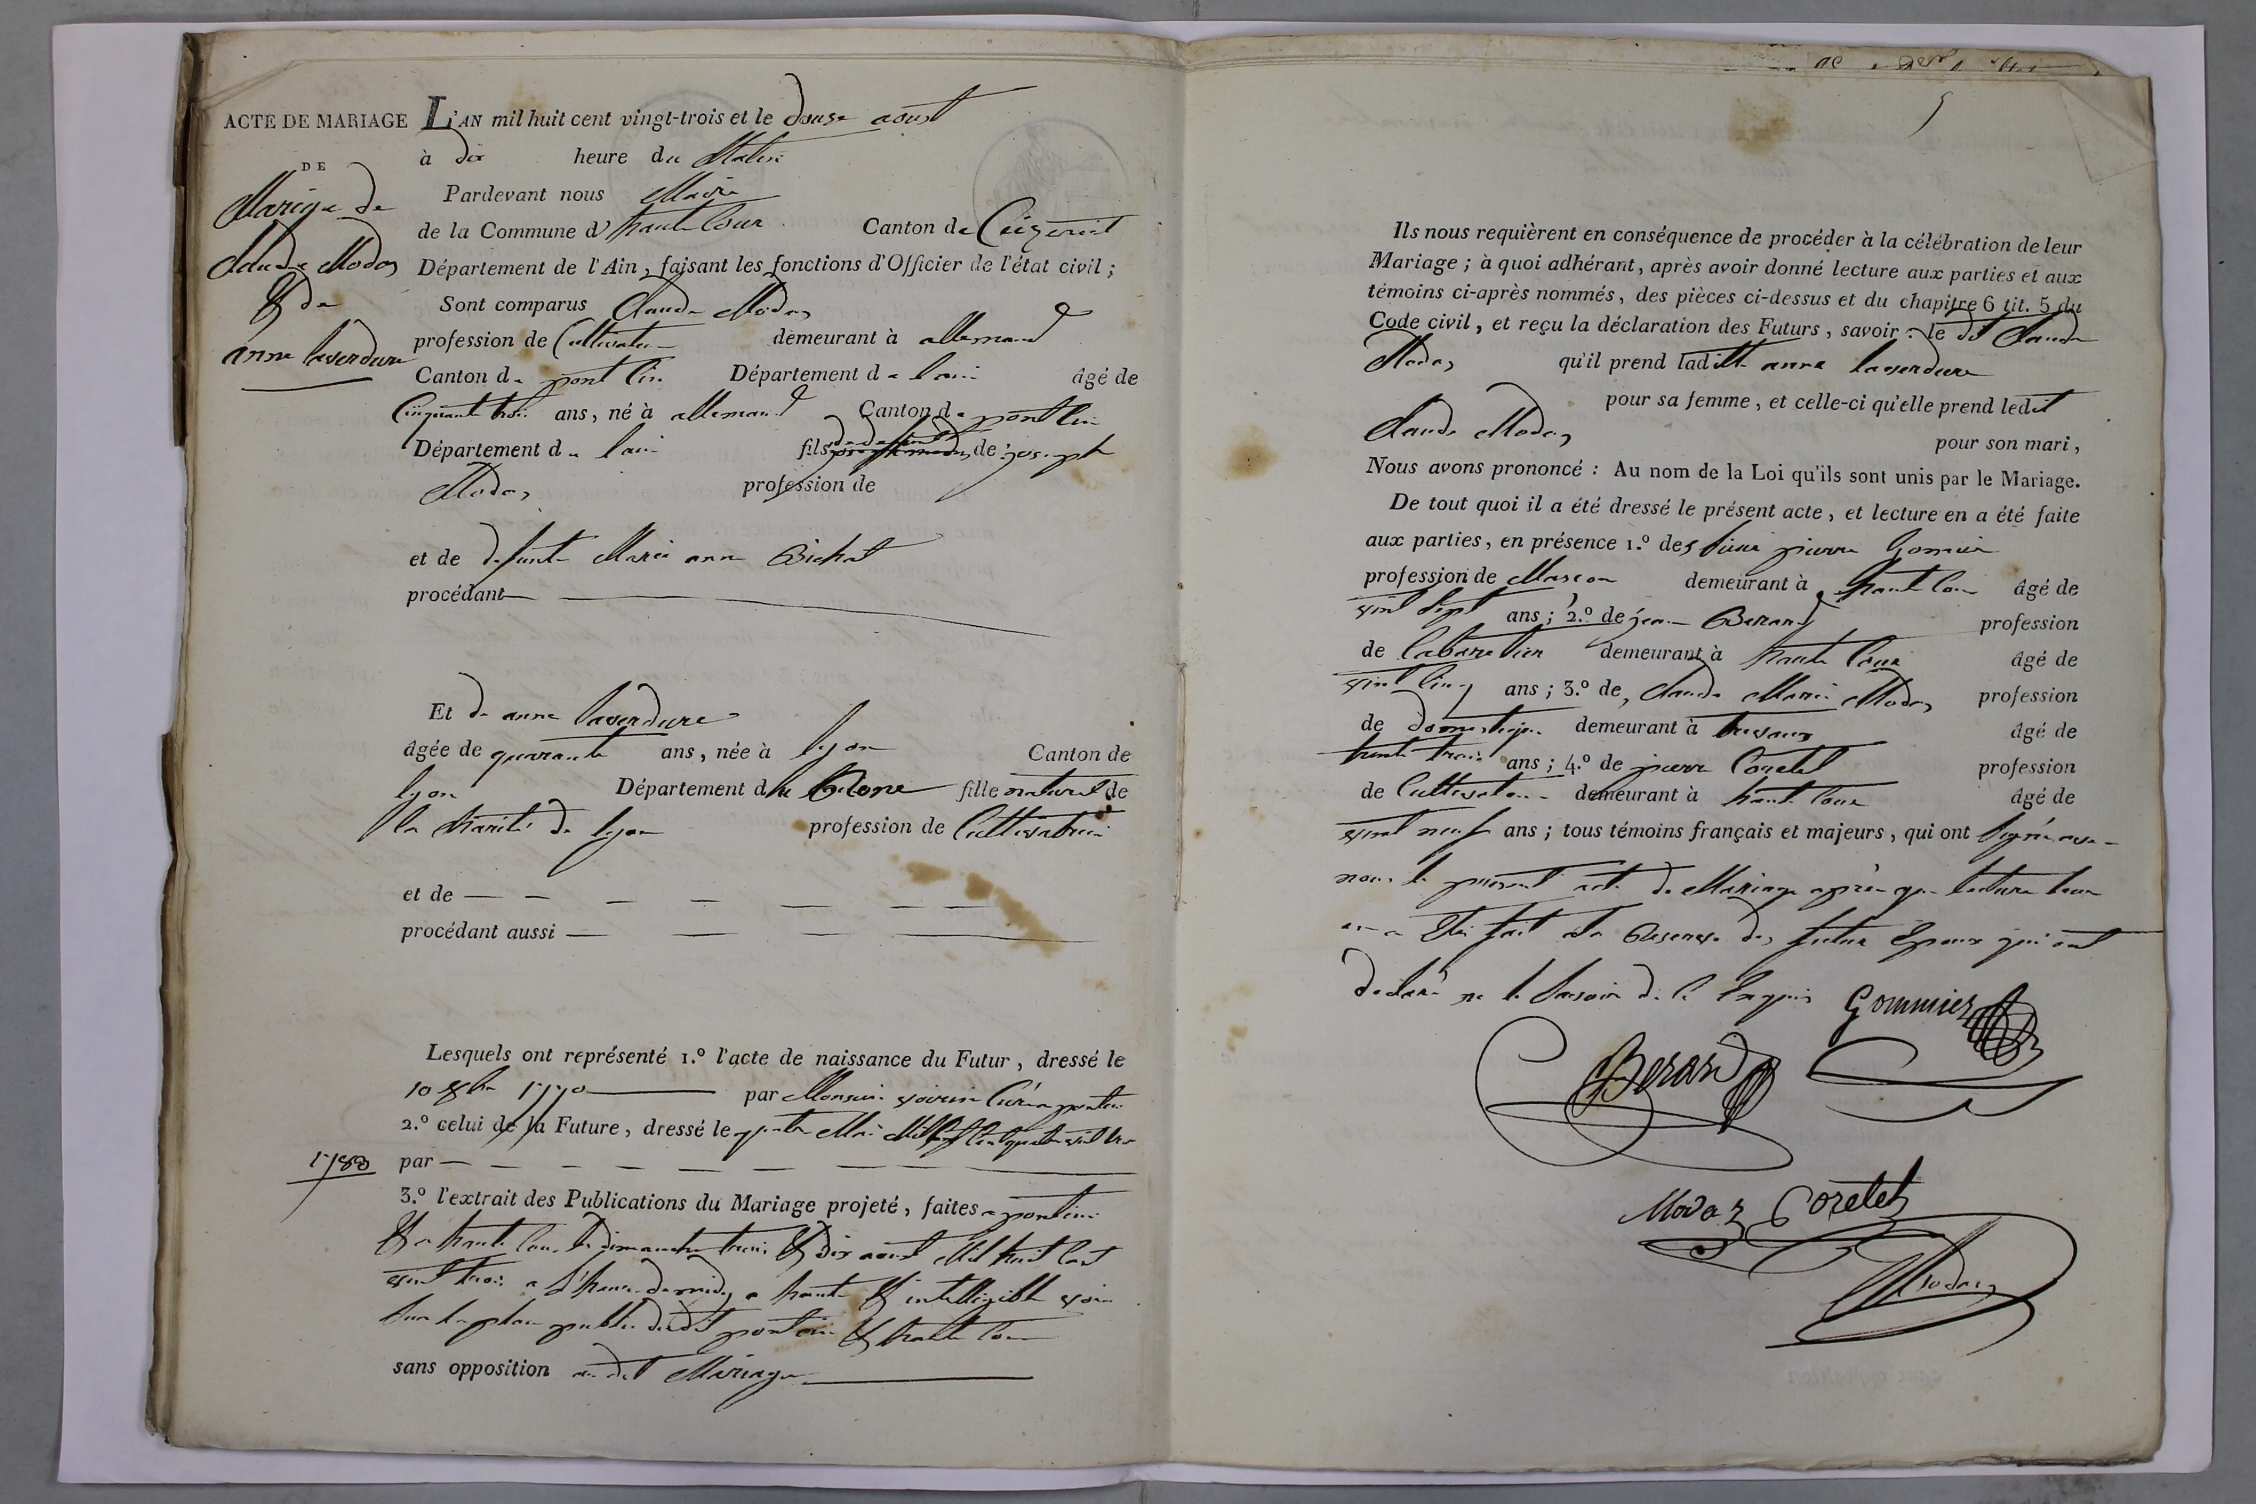 ACTE DE MARIAGE
DE
Mariage de
Claude Modas
& de
anne laverdure
L'AN mil huit cent vingt-trois et le douse aoust
à dix heure du Matin
Pardevant nous Maire
de la Commune d'hautecour Canton de Ceizeriat
Département de l'Ain, faisant les fonctions d'Officier de l'état civil ;
Sont comparus Claude Modas
profession de Cultivateur demeurant à allemand
Canton de pont Cin Département de l'ain âgé de
Cinquante trois ans, né à allemand Canton de pont Cin
Département de l'ain fils de defunt de joseph
Modas profession de
et de defunte Marie anne Bichat
procédant
Et de anne laverdure
âgée de quarante ans, née à lyon Canton de
lyon Département du Rone fille naturel de
la charité de lyon profession de Cultivatrice
et de
procédant aussi
Lesquels ont représenté 1.º l'acte de naissance du Futur, dressé le
10 8bre 1770 par Monsieur Curé a poncin
2.º celui de la Future, dressé le quatre Mai Mil sept Cent quatre vint trois
1783
par
3.º l'extrait des Publications du Mariage projeté, faites a poncin
& a haute Cour les dimanche trois & dix aoust Mil huit Cent
vint trois a l'heure de midy a haute & intelligible voix
sur la place public dudit poncin & haute Cour
sans opposition au dit Mariage
Ils nous requièrent en conséquence de procéder à la célébration de leur
Mariage ; à quoi adhérant, après avoir donné lecture aux parties et aux
témoins ci-après nommés, des pièces ci-dessus et du chapitre 6 tit. 5 du
Code civil, et reçu la déclaration des Futurs, savoir : le dit Claude
Modas qu'il prend laditte anne laverdure
pour sa femme, et celle-ci qu'elle prend ledit
Claude Modas pour son mari,
Nous avons prononcé : Au nom de la Loi qu'ils sont unis par le Mariage.
De tout quoi il a été dressé le présent acte, et lecture en a été faite
aux parties, en présence 1.º des sieur pierre Gomier
profession de Mascon demeurant à haute Cour âgé de
vint sept ans ; 2.º de jean Berard profession
de Cabaretier demeurant à haute Cour âgé de
vint Cinq ans ; 3.º de Claude Marie Modas profession
de domestique demeurant à âgé de
trente trois ans ; 4.º de pierre Coretet profession
de Cultivateur demeurant à haute Cour âgé de
vint neuf ans ; tous témoins français et majeurs, qui ont signé avec
nous le present acte de Mariage après que lecture leur
en a été fait a la Reserve des futur Epoux qui ont
declaré ne le savoir de ce Enquis Gommier
Berard
Modaz Coretet
Modas